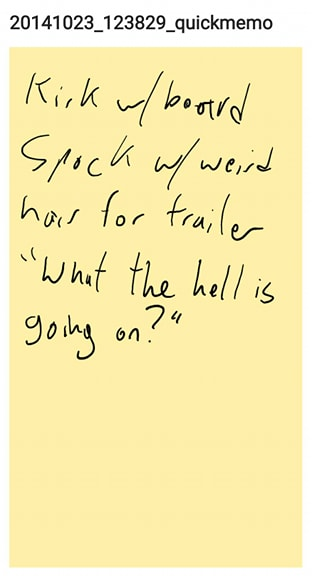 20141023_123829_quickmemo
Kirk w/ beard
Spock w/ weird
hair for trailer
"What the hell is
going on?"